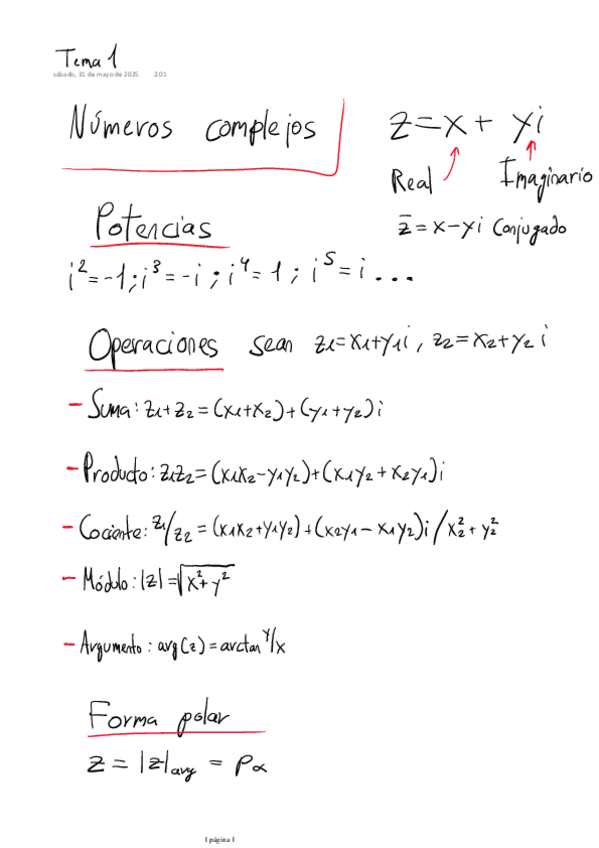 Tema 1
sábado, 31 de mayo de 2025 2:01
Números complejos
z=x+yi
Real Imaginario
z̄=x-yi Conjugado
Potencias
i²=-1; i³=-i; i⁴=1; i⁵=i...
Operaciones sean z₁=x₁+y₁i, z₂=x₂+y₂i
- Suma: z₁+z₂=(x₁+x₂)+(y₁+y₂)i
- Producto: z₁z₂=(x₁x₂-y₁y₂)+(x₁y₂+x₂y₁)i
- Cociente: z₁/z₂=(x₁x₂+y₁y₂)+(x₂y₁-x₁y₂)i/x₂²+y₂²
- Módulo: |z|=√x²+y²
- Argumento: arg(z)=arctan y/x
Forma polar
z=|z|arg=ρα
1 página 1